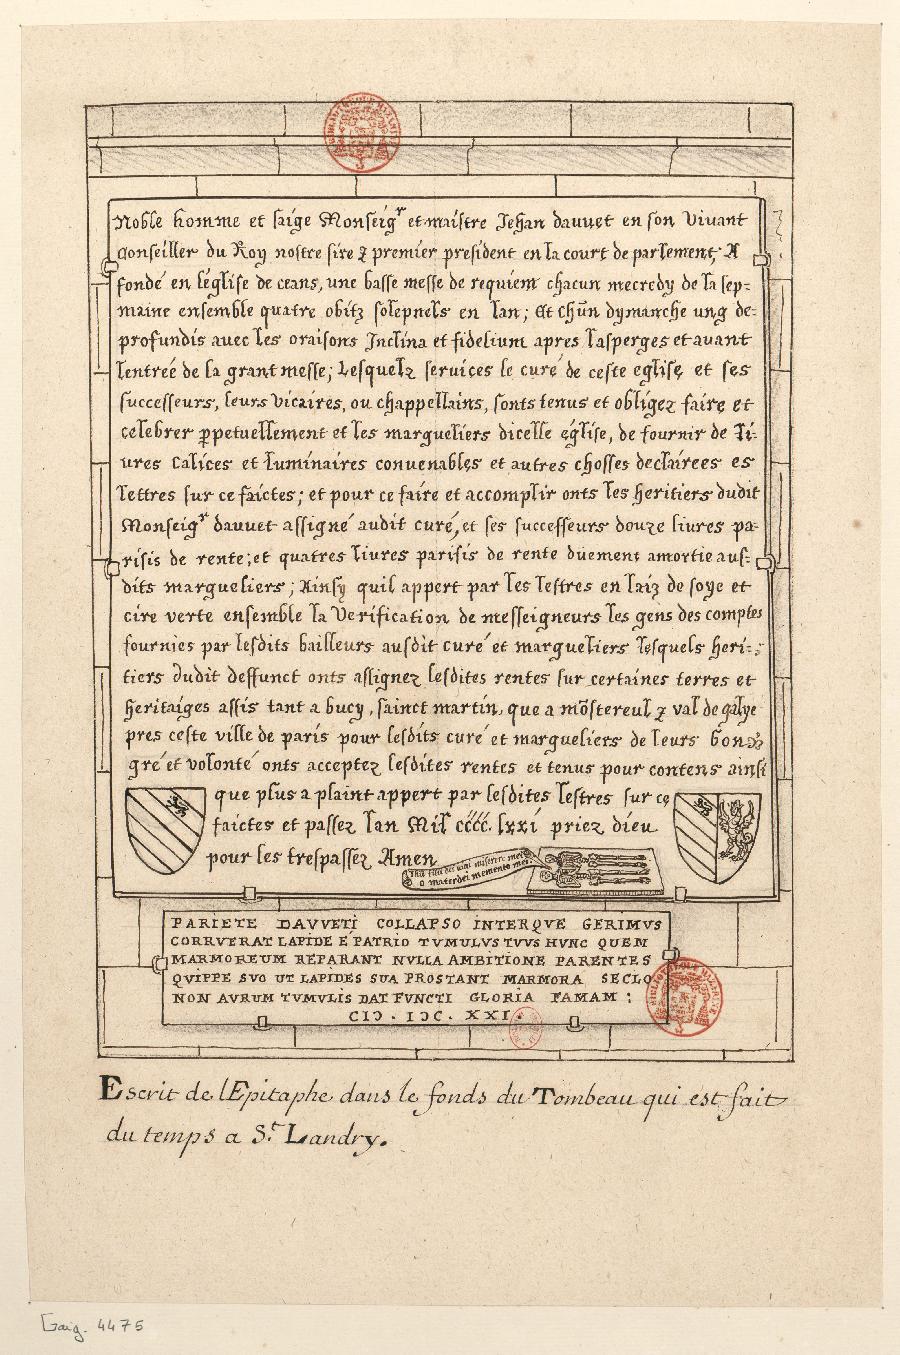 Noble homme et saige Monseigr et maistre Jehan dauuet en son Viuant
Conseiller du Roy nostre sire & premier president en la court de parlement; A
fondé en l'église de ceans, une basse messe de requiem chacun mecredy de la sep=
maine ensemble quatre obitz solepnels en lan; Et chũn dymanche ung de=
profundis auec les oraisons Inclina et fidelium apres lasperges et auant
lentreé de la grant messe; Lesquelz seruices le curé de ceste eglise et ses
successeurs, leurs Vicaires, ou chappellains, sont tenus et obligez faire et
celebrer ꝑpetuellement et les margueliers dicelle église, de fournir de Li-
ures Calices et luminaires conuenables et autres chosses declairees es
lettres sur ce faictes; et pour ce faire et accomplir onts les heritiers dudit
Monseigr dauuet assigné audit curé, et ses successeurs douze liures pa=
risis de rente; et quatres liures parisis de rente düement amortie aus=
dits margueliers; Ainsy quil appert par les lestres en laiz de soye et
cire verte ensemble la Verification de messeigneurs les gens des comptes
fournies par lesdits bailleurs ausdit curé et margueliers lesquels heri=
tiers dudit deffunct onts assignez lesdites rentes sur certaines terres et
heritaiges assis tant a bucy, sainct martin, que a mõstereul & val de galye
pres ceste ville de paris pour lesdits curé et margueliers de leurs bon
gré et volonté onts acceptez lesdites rentes et tenus pour contens ainsi
que plus a plaint appert par lesdites lestres sur ce
faictes et passez lan Mil cccc. lxxi priez dieu
pour les trespassez Amen
miserere mei
o mater dei memento mei
PARIETE DAVVETI COLLAPSO INTERQVE GERIMVS
CORRVERAT LAPIDE É PATRIO TVMVLVS TVVS HVNC QUEM
MARMOREUM REPARANT NVLLA AMBITIONE PARENTES
QVIPPE SVO UT LAPIDES SUA PROSTANT MARMORA SECLO
NON AVRUM TVMVLIS DAT FVNCTI GLORIA FAMAM :
CIƆ . IƆC . XXI .
Escrit de l'Epitaphe dans le fonds du Tombeau qui est fait
du temps a St. Landry.
Gaig. 4475
BIBLIOTHEQUE MAZARINE
BIBLIOTHEQUE MAZARINE